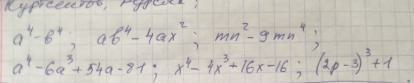 a⁴-b⁴; ab⁴-4ax²; mn²-9mn⁴;
a⁴-6a³+54a-81; x⁴-4x³+16x-16; (2p-3)³+1